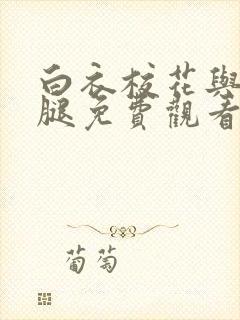 白衣校花與
腿免費觀看
葡萄